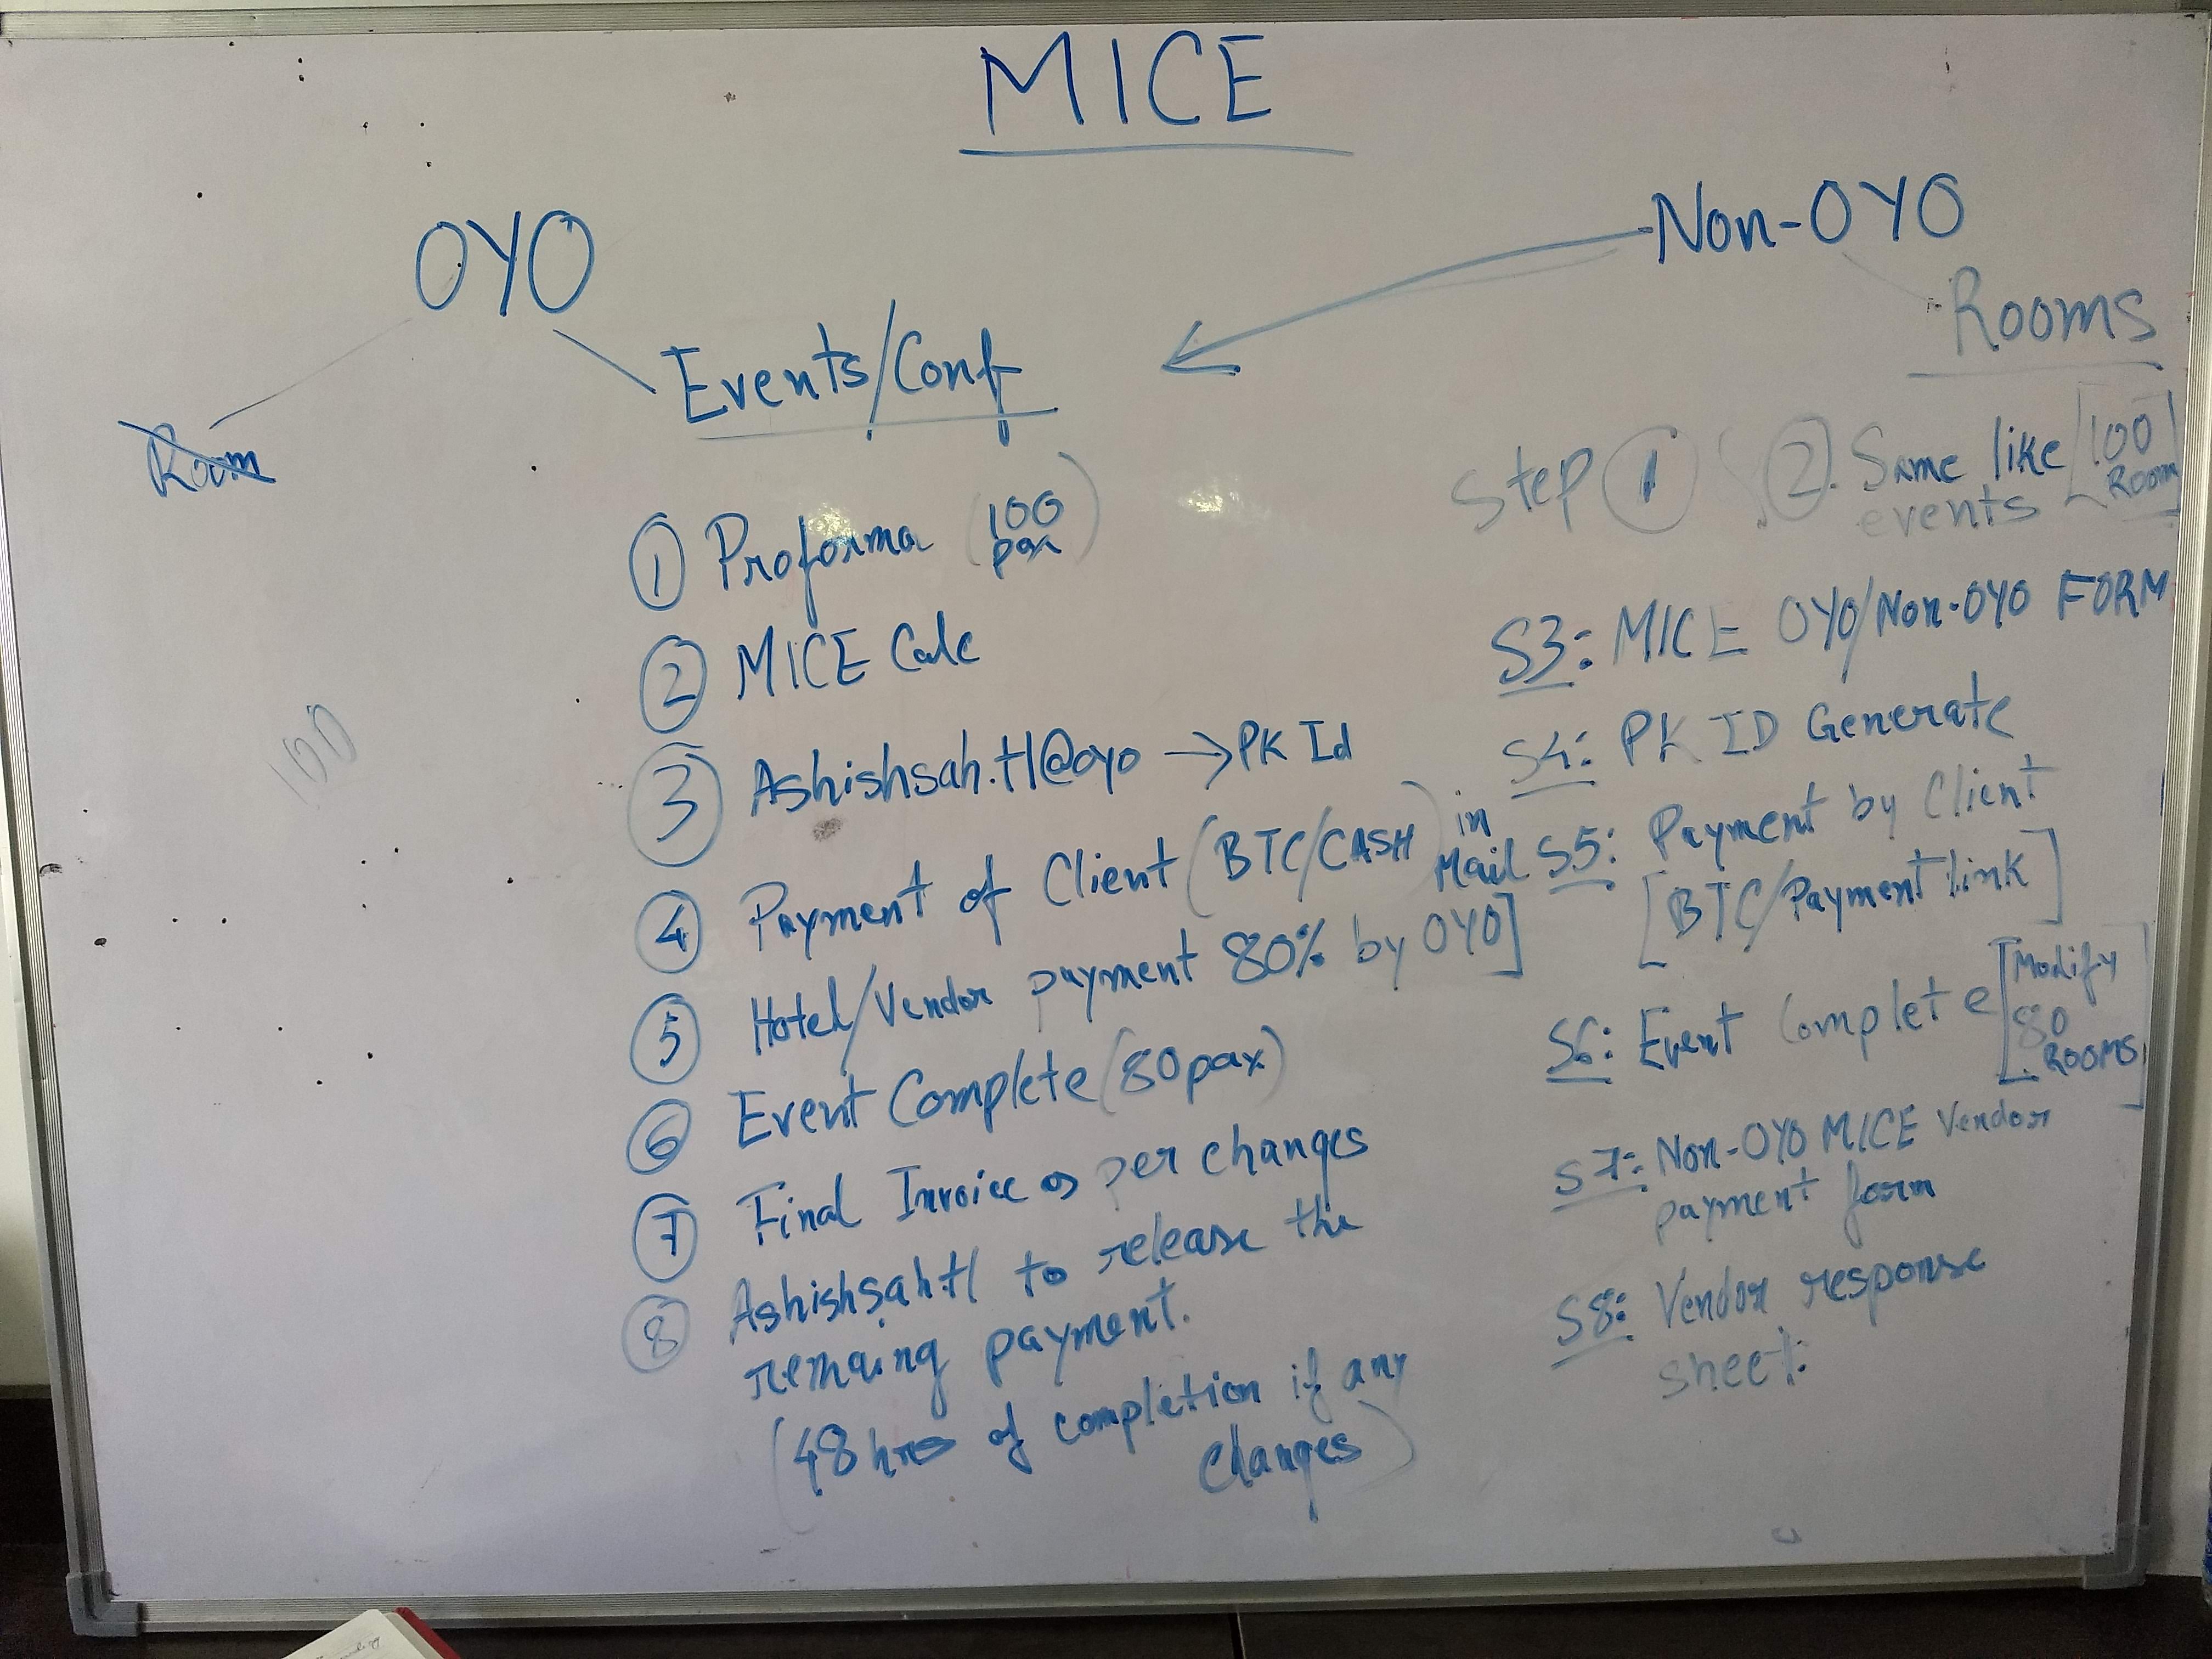 MICE
OYO
Non-OYO
Rooms
Events/Conf
Room
Step 1 & 2. Same like events [100 Room]
1 Proforma (100 pax)
2 MICE Calc
3 Ashishsah.tl@oyo → PK Id
4 Payment of Client (BTC/CASH) in Mail
5 Hotel/Vendor payment 80% by OYO]
6 Event Complete (80pax)
7 Final Invoice as per changes
8 Ashishsah.tl to release the
remaing payment.
(48 hrs of completion if any
changes)
S3: MICE OYO/Non-OYO FORM
S4: PK ID Generate
S5: Payment by Client
[BTC/Payment link]
S6: Event Complete [Modify 80 ROOMS]
S7: Non-OYO MICE Vendor
payment form
S8: Vendor response
sheet.
100